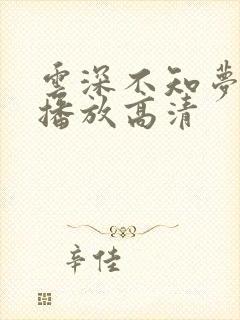 雲深不知夢
播放高清
辛佳